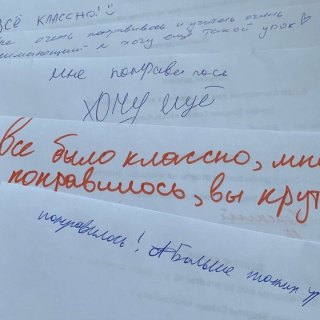 ВСЁ КЛАССНО!
мне очень понравилось и учитель очень
понимающий я хочу ещё такой урок
мне понравилось
ХОЧУ ИЩЁ
Все было классно, мне
понравилось, вы крут
понравилось! Больше таких ур